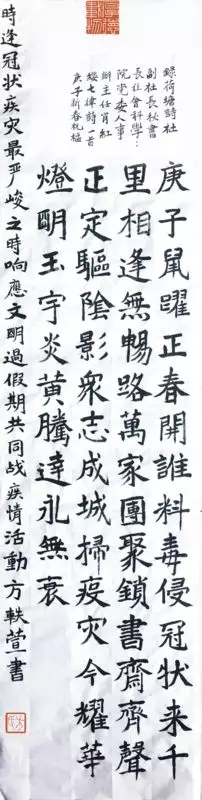 錄荷塘詩社
副社長秘書
長社會科學
院党委人事
辦主任肖紅
七律詩一首
庚子新春
庚子鼠躍正春開誰料毒侵冠状来千
里相逢無暢路萬家團聚鎖書齋齊聲
正定驅陰影衆志成城掃疫灾今耀華
燈朙玉宇炎黃騰達永無衰
時逢冠状疾灾最严峻之時响應文明過假期共同战疾情活動方軼萱書